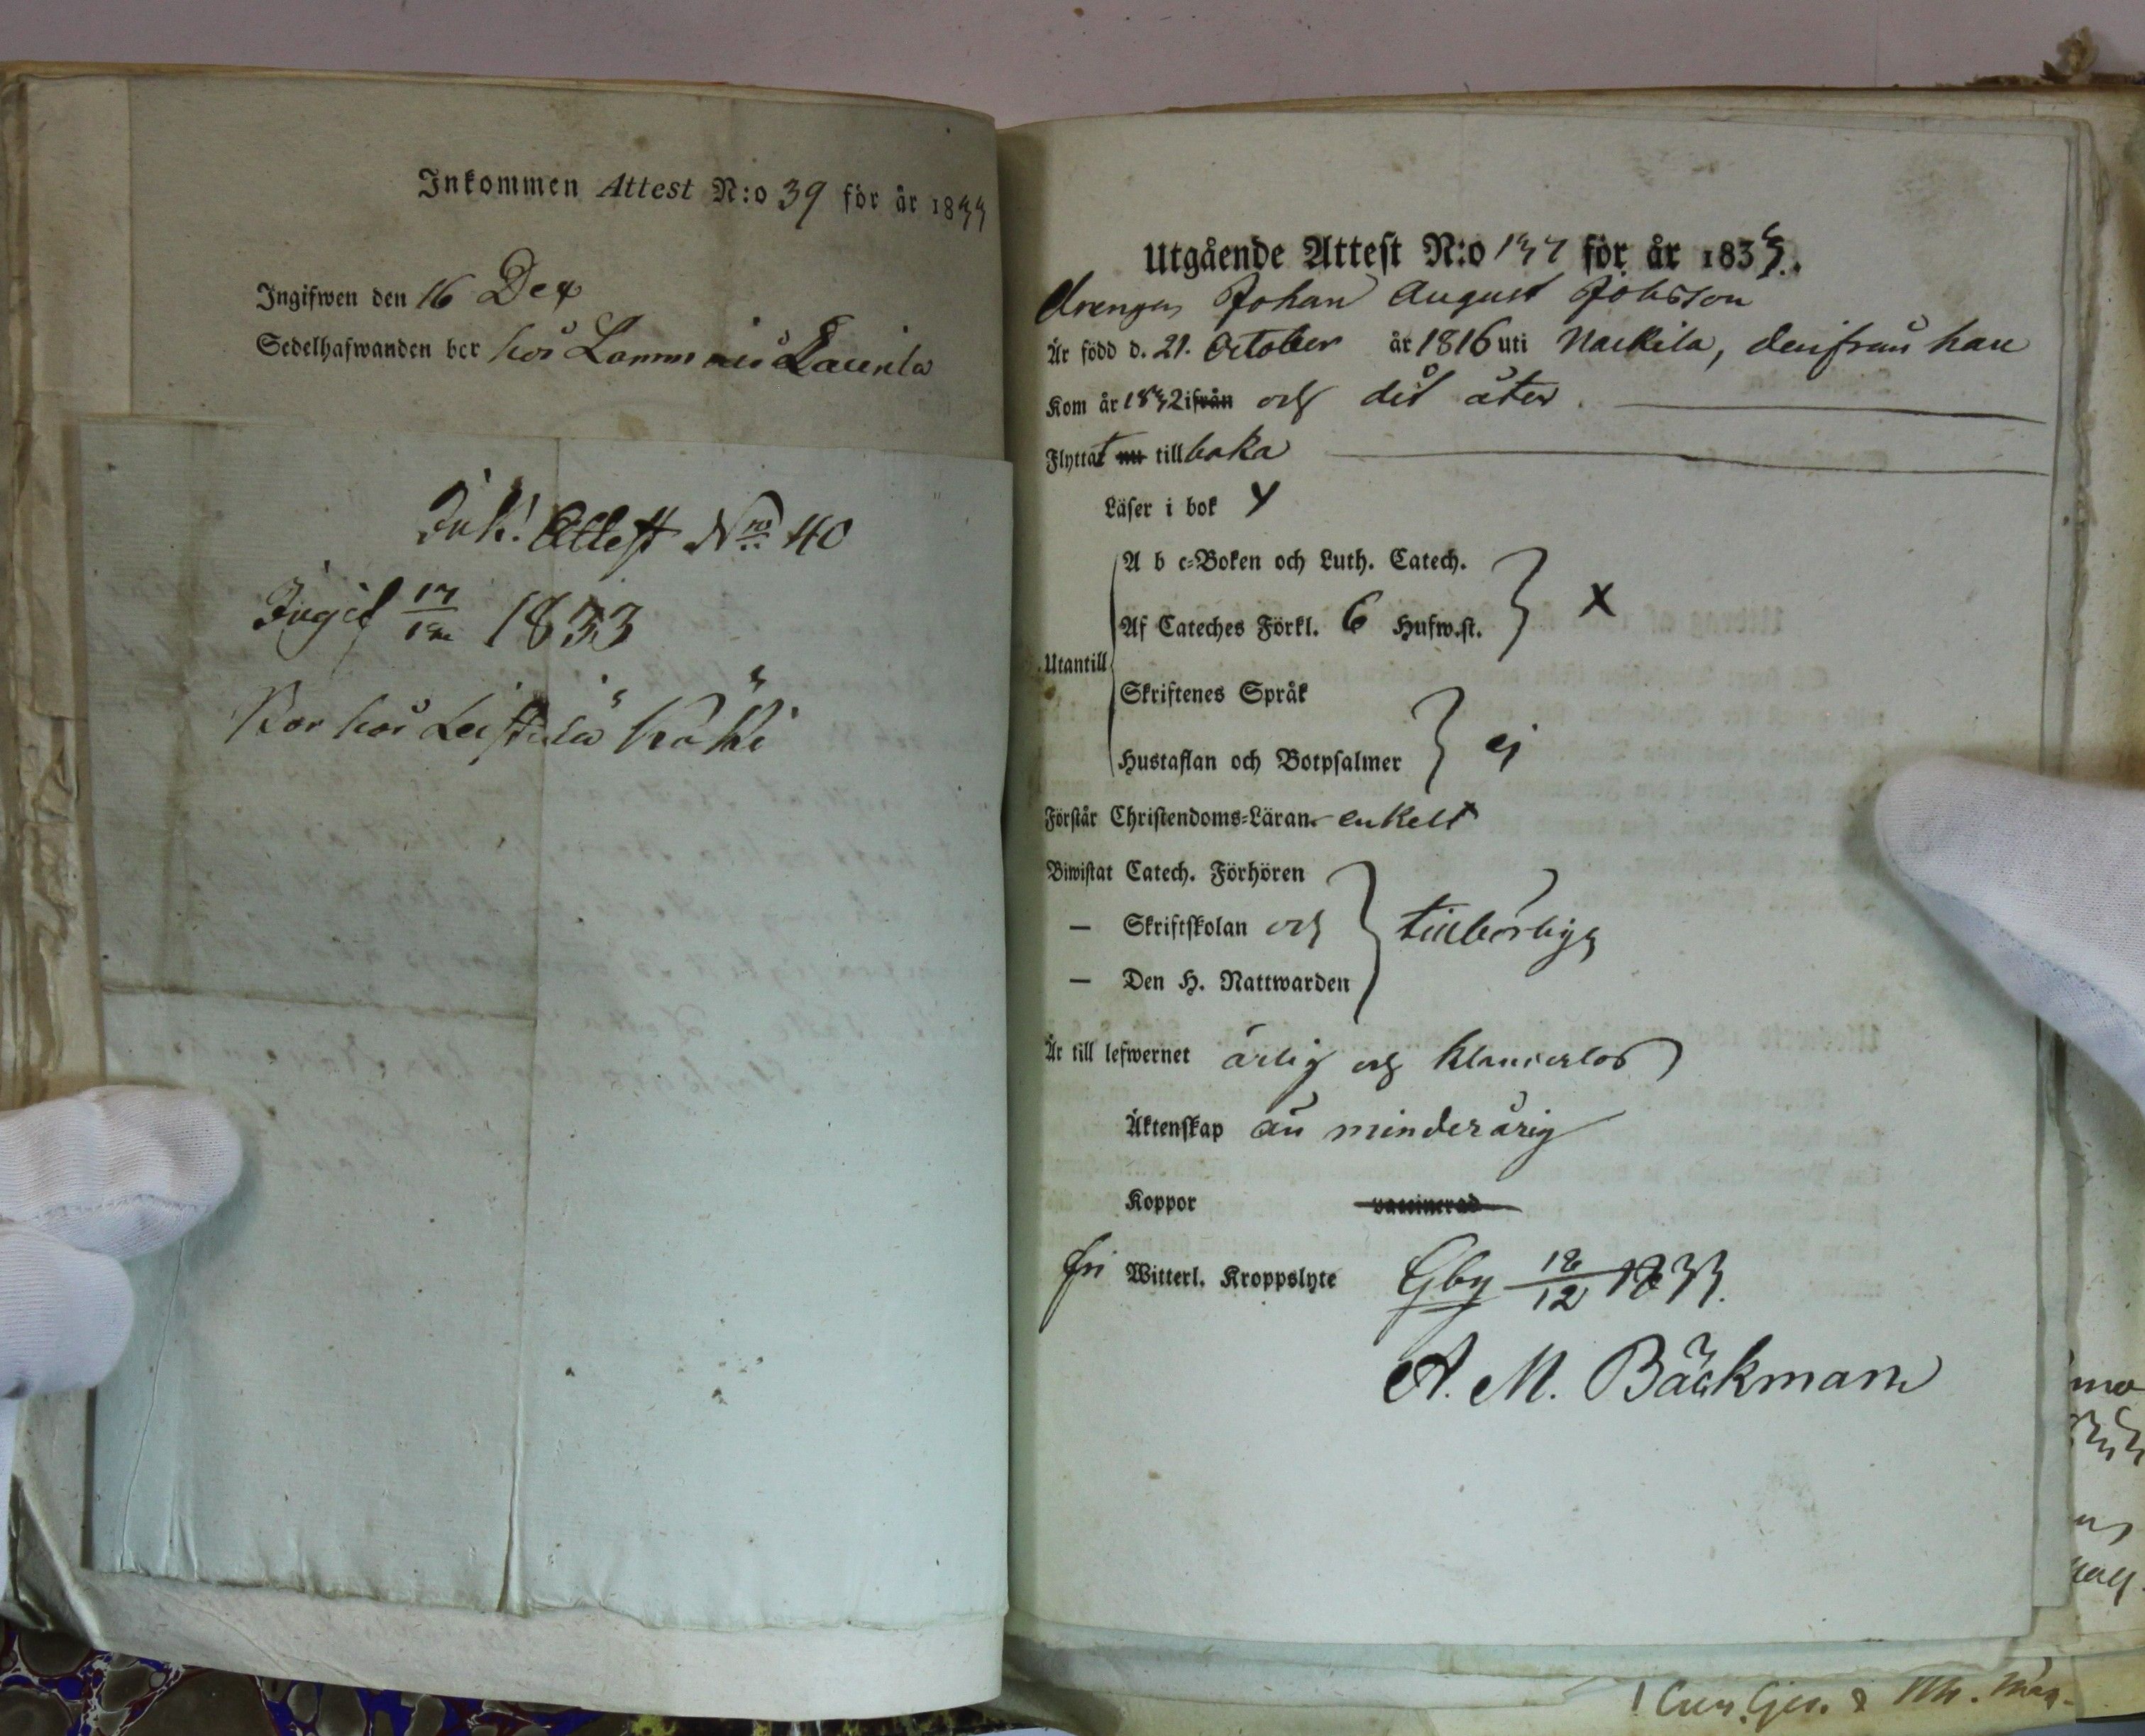 Inkommen Attest N:o 39 för år 1833
Ingifwen den 16 Dec
Sedelhafwanden bor hos Lammais Laurila
Ink! Attest No 40
Ingif 17/12 1833
Bor hos Leistilä
Utgående Attest N:o 137 för år 1833.
Drengen Johan August Jobsson
Är född d. 21. October år 1816 uti Nackila, derifrån han
Kom år 1832 ifrån och dit åter
Flyttat nu tillbaka
Läser i bok
A b c-Boken och Luth. Catech.
Af Cateches Förkl. 6 Hufw.st. x
Utantill
Skriftenes Språk
Hustaflan och Botpsalmer ej
Förstår Christendoms-Läran enkelt
Biwistat Catech. Förhören
— Skriftskolan och tillbörligt
— Den H. Nattwarden
Är till lefwernet ärlig och klanderlös
Äktenskap än minderårig
Koppor vaccinerad
fri Witterl. Kroppslyte Gby 12 1833.
A. M. Bäckman